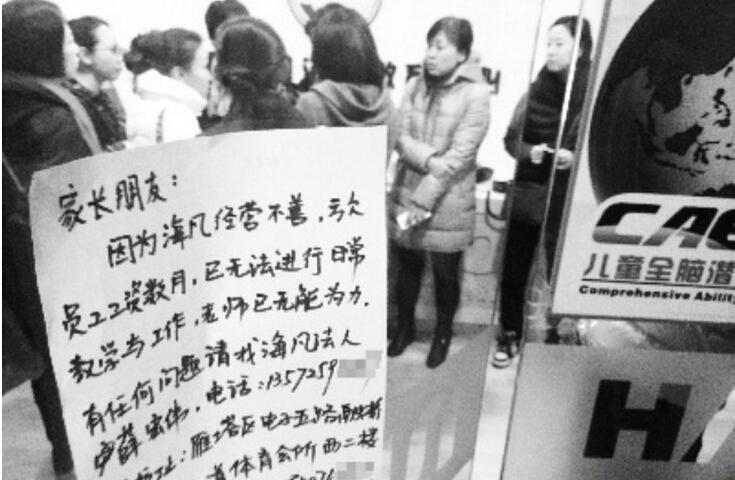 家长朋友：
因为海风经营不善，亏欠
员工工资数月，已无法进行日常
教学与工作，老师已无能为力。
有任何问题请找海风法人
薛宏伟，电话：1357259
址：雁塔区电子五路
体育会所西二楼
CAE
儿童全脑潜
Comprehensive Ability
HA